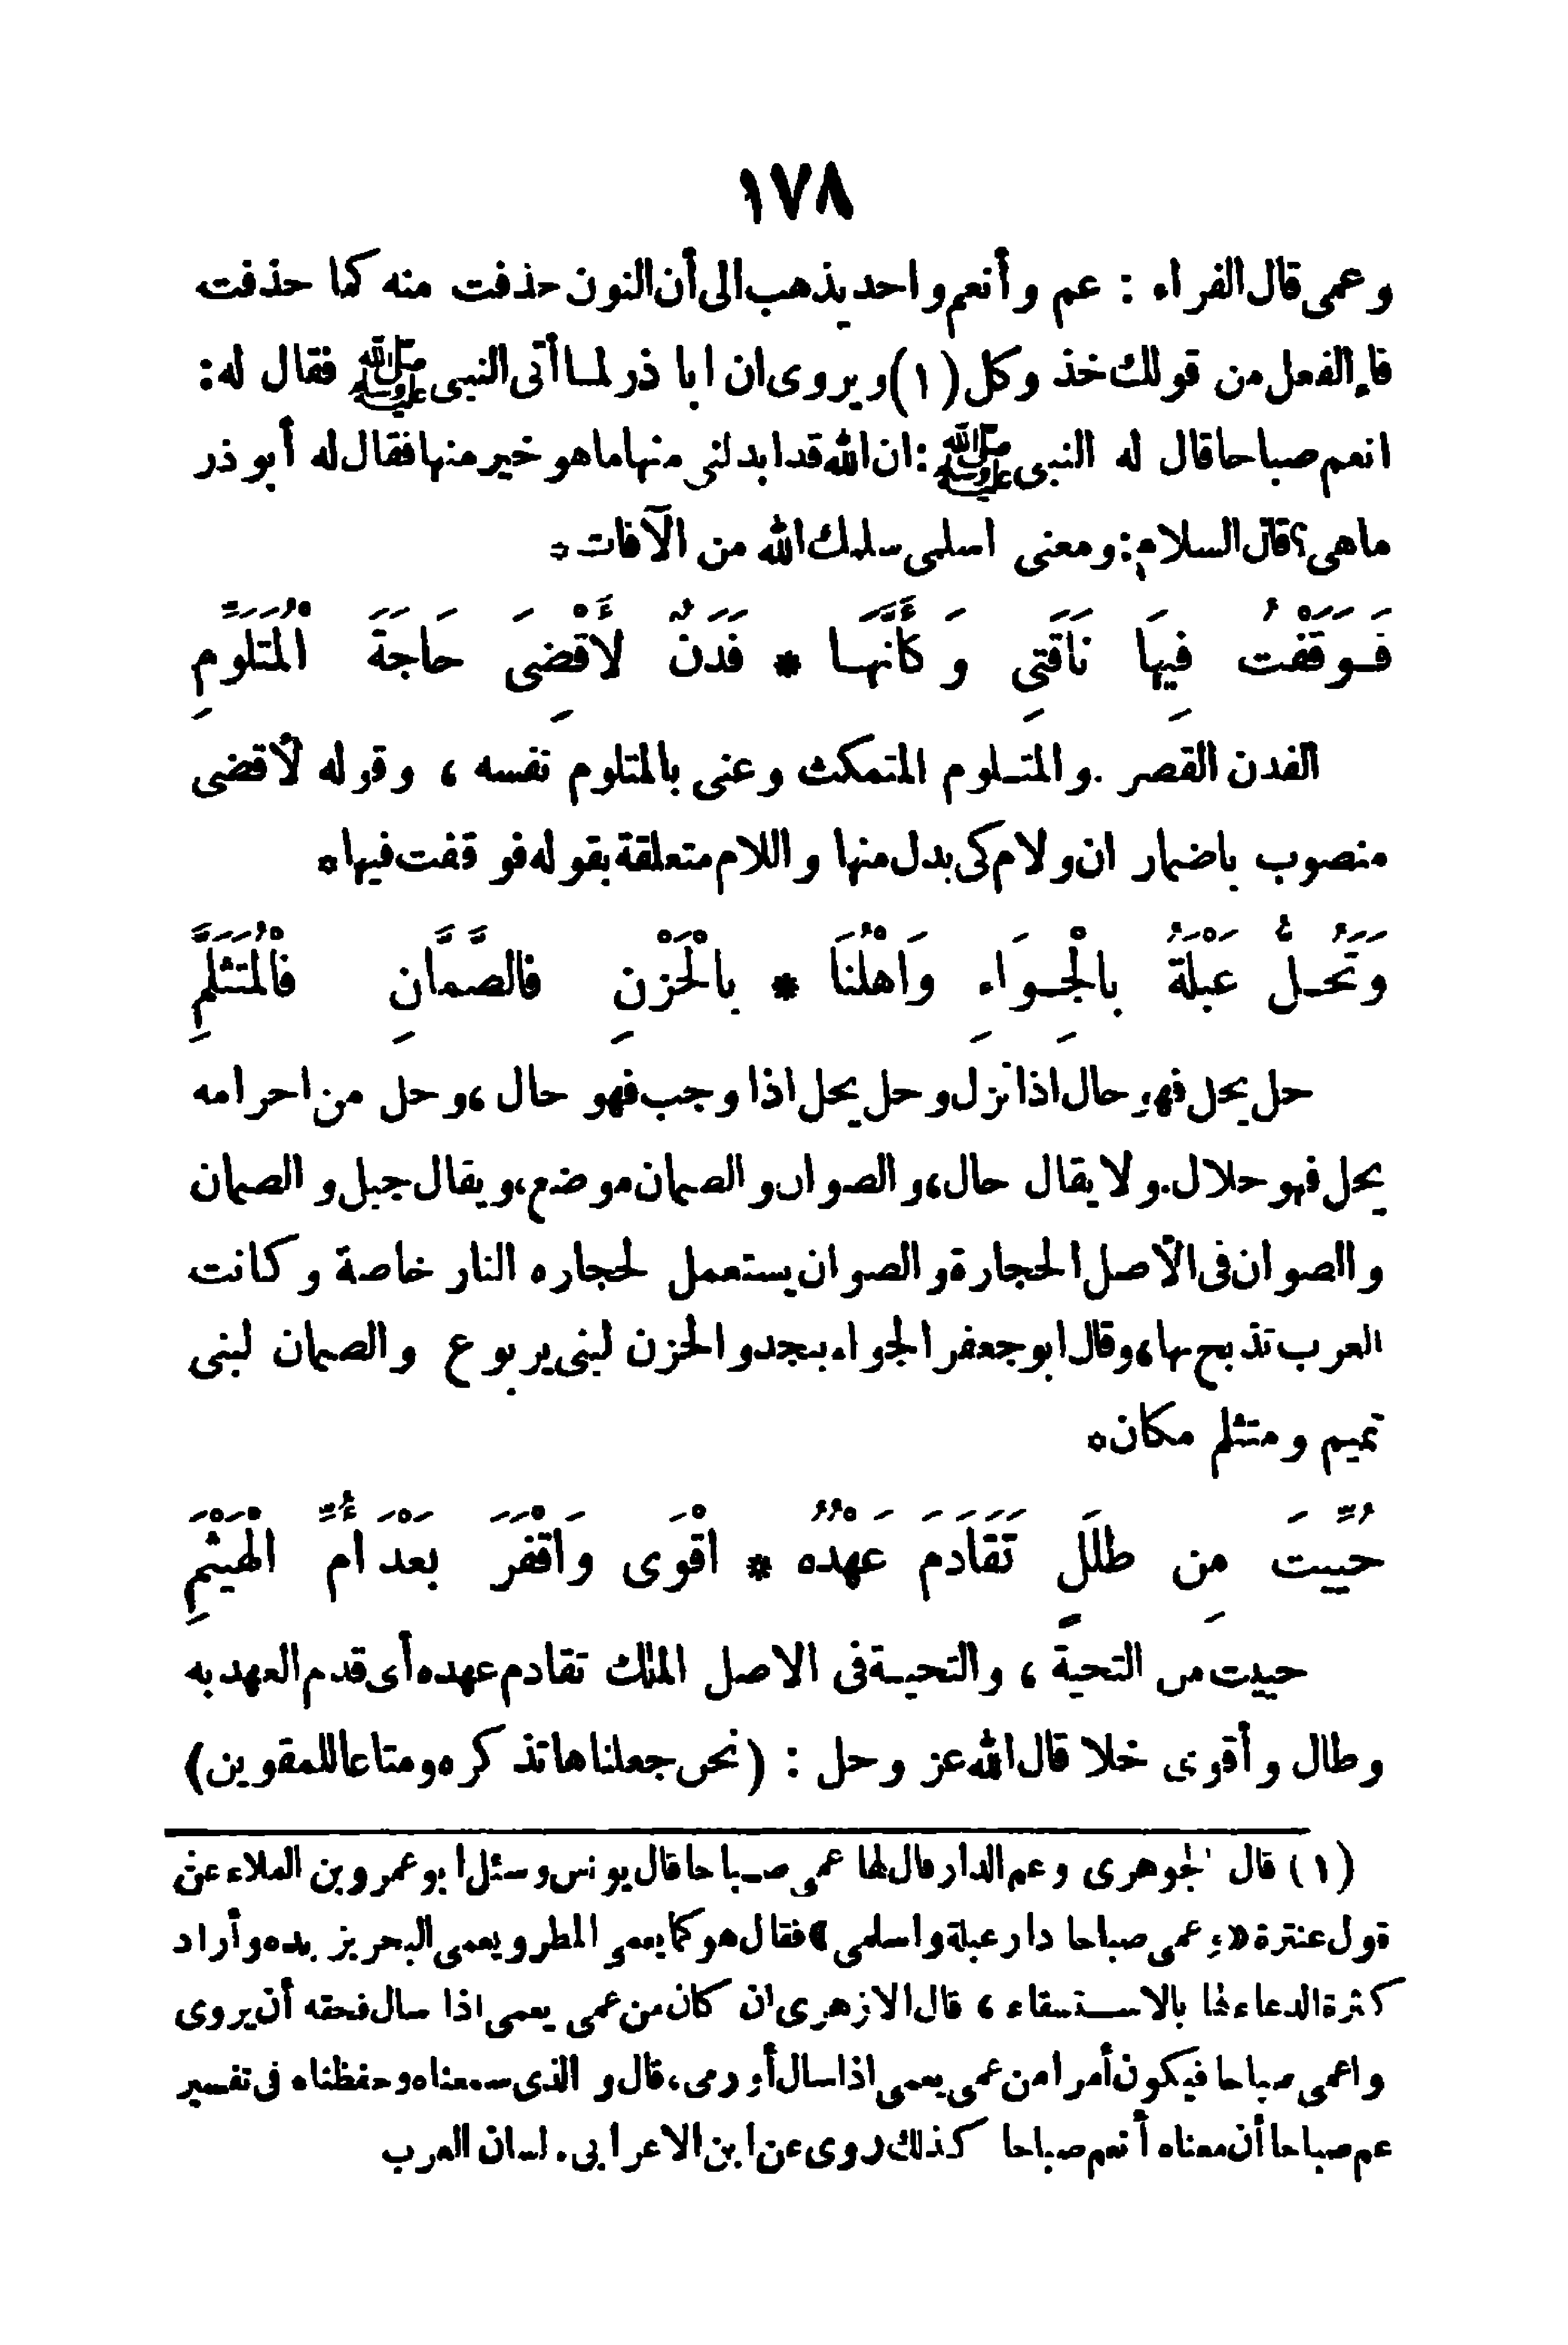 ١٧٨
وعمى قال الفراء : عم وأنعم واحد يذهب الى أن النون حذفت منه كما حذفت
فاء الفعل من قولك خذ وكل (١) ويروى ان ابا ذر لما أتى النبى ﷺ فقال له:
انعم صباحا قال له النبى ﷺ: ان الله قد ابدلنى منها ما هو خير منها فقال له أبو ذر
ماهى؟ قال السلام: ومعنى اسلمى سلمك الله من الآفات*
فَوَقَفْتُ فِيهَا نَاقَتِى وَكَأَنَّهَا * فَدَنٌ لأَقْضِىَ حَاجَةَ الْمُتَلَوِّمِ
الفدن القصر . والمتلوم المتمكث وعنى بالمتلوم نفسه ، وقوله لأقضى
منصوب باضمار ان ولام كى بدل منها واللام متعلقة بقوله فوقفت فيها*
وَتَحُلُّ عَبْلَةُ بالْجِوَاءِ وَاهْلُنَا * بالْحَزْنِ فالصَّمَّانِ فالْمُتَثَلَّمِ
حل يحل فهو حال اذا نزل وحل يحل اذا وجب فهو حال ، وحل من احرامه
يحل فهو حلال. ولا يقال حال، والصوان والصمان موضع، ويقال جبل والصمان
والصوان فى الأصل الحجارة والصوان يستعمل لحجاره النار خاصة وكانت
العرب تذبح بها، وقال ابو جعفر الجواء بنجد والحزن لبنى يربوع والصمان لبنى
تميم ومتثلم مكان*
حُيِّيتَ مِن طلَلٍ تَقَادَمَ عَهْدُهُ * اقْوَى وَاقْفَرَ بَعْدَ أُمِّ الْهَيْثَمِ
حييت من التحية ، والتحية فى الاصل الملك تقادم عهده أى قدم العهد به
وطال وأقوى خلا قال الله عز وحل : (نحن جعلناها تذكره ومتاعا للمقوين)
(١) قال الجوهرى وعم الدار قال لها عمى صباحا قال يونس وسئل ابو عمرو بن العلاء عن
قول عنترة «وعمى صباحا دار عبلة واسلمى» فقال هو كما يعمى المطر ويعمى البحر يزبده وأراد
كثرة الدعاء لها بالاستسقاء ، قال الازهرى ان كان من عمى يعمى اذا سال فحقه أن يروى
واعمى صباحا فيكون أمرا من عمى يعمى اذا سال أو رمى، قال والذى سمعناه وحفظناه فى تفسير
عم صباحا أن معناه أنعم صباحا كذلك روى عن ابن الاعرابى. لسان العرب